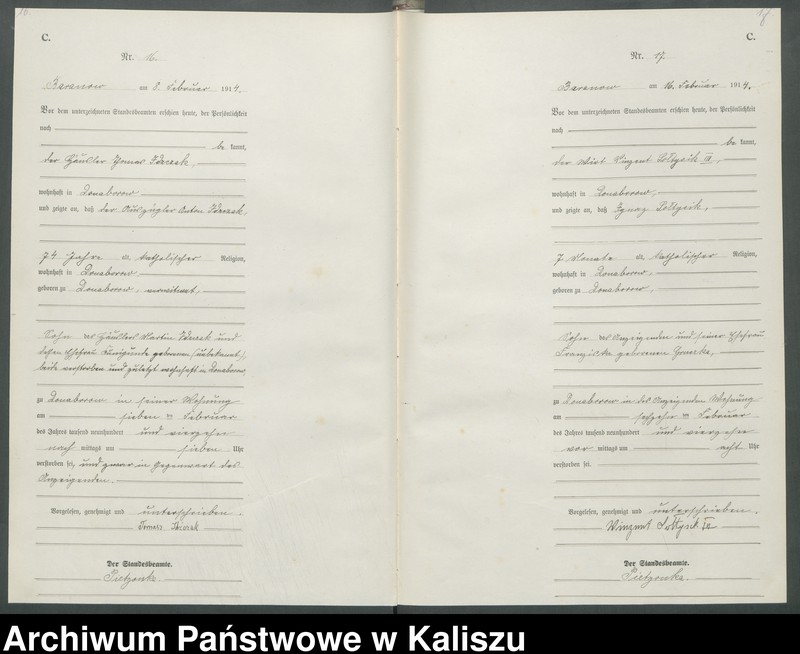 16.
C.
Nr. 16.
Baranow am 8. Februar 1914.
Vor dem unterzeichneten Standesbeamten erschien heute, der Persönlichkeit
nach
be kannt,
der Häusler Thomas
wohnhaft in Donaborow
und zeigte an, daß der Auszügler Anton
74 Jahre alt, katholischer Religion,
wohnhaft in Donaborow
geboren zu Donaborow, verwitwet,
Sohn des Häuslers Martin und
dessen Ehefrau Kunigunde geborenen (unbekannt),
beide verstorben und zuletzt wohnhaft in Donaborow
zu Donaborow in seiner Wohnung
am sieben ten Februar
des Jahres tausend neunhundert und vierzehn
nach mittags um sieben Uhr
verstorben sei, und zwar in Gegenwart des
Anzeigenden.
Vorgelesen, genehmigt und unterschrieben.
Der Standesbeamte.
Pietzonka.
C.
Nr. 17.
Baranow am 16. Februar 1914.
Vor dem unterzeichneten Standesbeamten erschien heute, der Persönlichkeit
nach
be kannt,
der Wirt Vinzent Soltysik
wohnhaft in Donaborow,
und zeigte an, daß Ignaz Soltysik,
7 Monate alt, katholischer Religion,
wohnhaft in Donaborow,
geboren zu Donaborow,
Sohn des Anzeigenden und seiner Ehefrau
Franziska geborenen
zu Donaborow in des Anzeigenden Wohnung
am sechzehn ten Februar
des Jahres tausend neunhundert und vierzehn
vor mittags um acht Uhr
verstorben sei.
Vorgelesen, genehmigt und unterschrieben.
Soltysik
Der Standesbeamte.
Pietzonka.
Archiwum Państwowe w Kaliszu